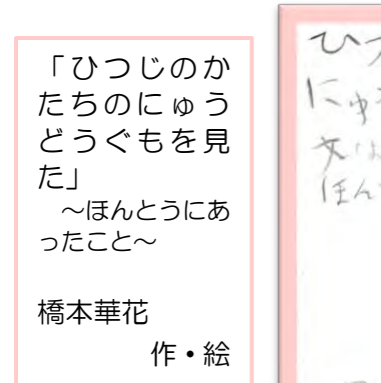 「ひつじのか
たちのにゅう
どうぐもを見
た」
～ほんとうにあ
ったこと～
橋本華花
作・絵
ひつ
にゅ
文
ほん